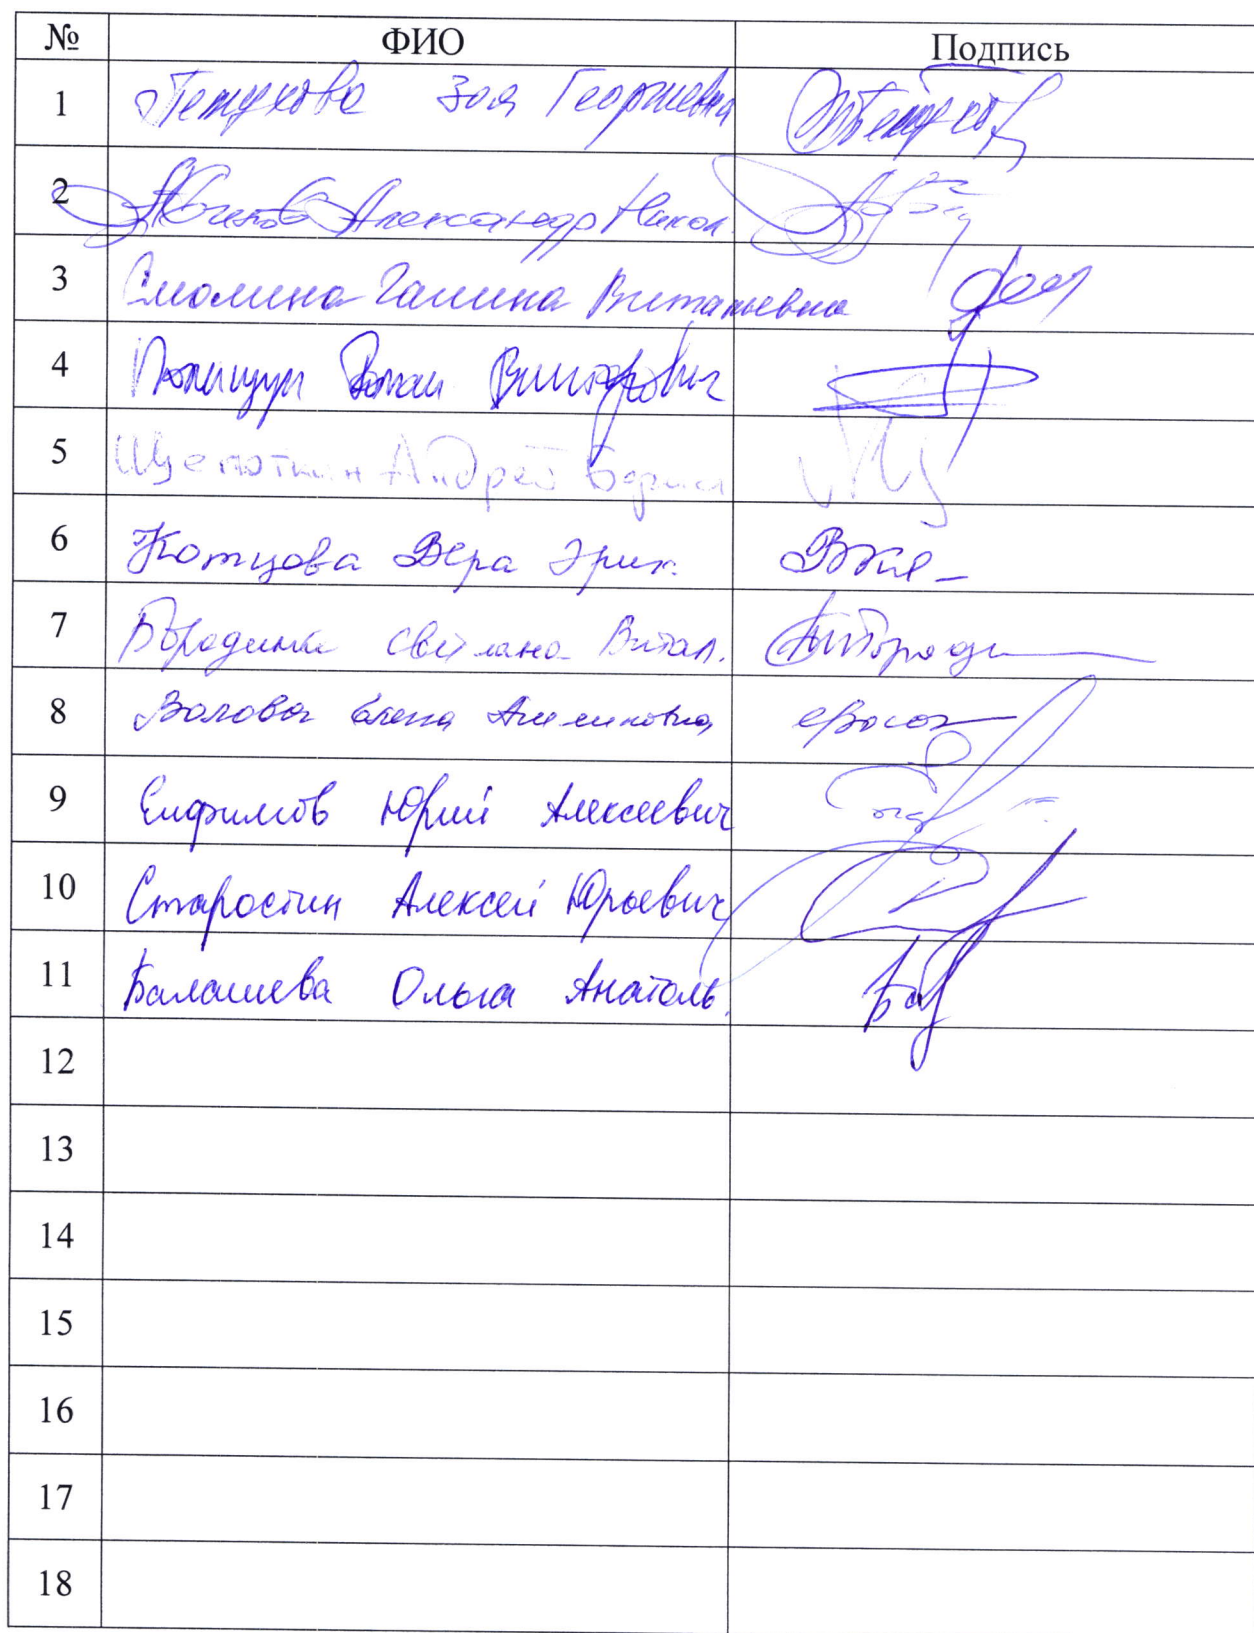 № ФИО Подпись
1 Петухова Зоя Георгиевна
2 Александр Никол.
3 Смолина Галина Витальевна
4 Полищук Роман Викторович
5 Щепоткин Андрей Борис
6 Котцова Вера Эрик.
7 Бородина Светлана Витал.
8 Волова Елена
9 Енфимов Юрий Алексеевич
10 Старостин Алексей Юрьевич
11 Балашева Ольга Анатоль.
12
13
14
15
16
17
18